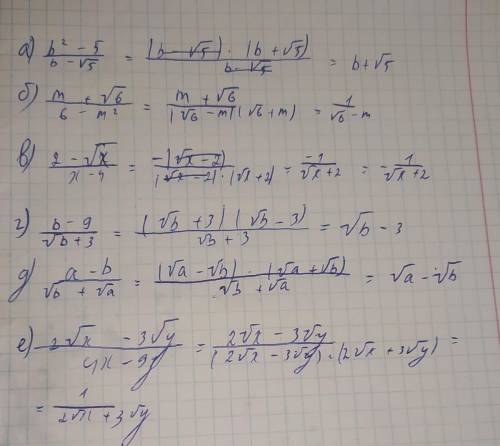 а) (b² - 5)/(b - √5) = ((b - √5) · (b + √5))/(b - √5) = b + √5
б) (m + √6)/(6 - m²) = (m + √6)/((√6 - m)(√6 + m)) = 1/(√6 - m)
в) (2 - √x)/(x - 4) = (-(√x - 2))/((√x - 2) · (√x + 2)) = (-1)/(√x + 2) = - 1/(√x + 2)
г) (b - 9)/(√b + 3) = ((√b + 3)(√b - 3))/(√b + 3) = √b - 3
д) (a - b)/(√b + √a) = ((√a - √b) · (√a + √b))/(√b + √a) = √a - √b
е) (2√x - 3√y)/(4x - 9y) = (2√x - 3√y)/((2√x - 3√y) · (2√x + 3√y)) =
= 1/(2√x + 3√y)